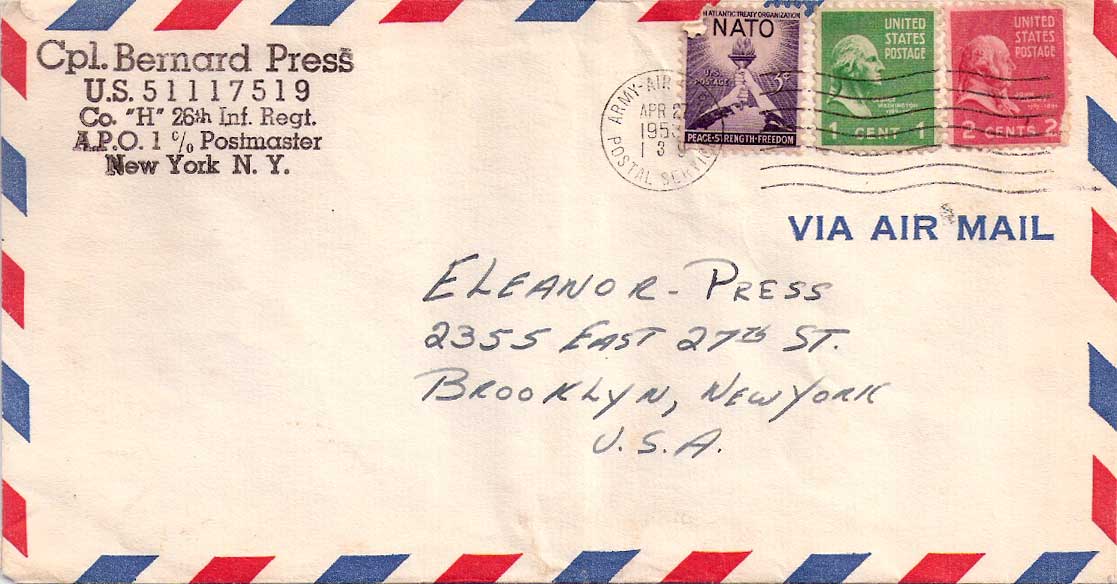 Cpl. Bernard Press
U.S. 51117519
Co. "H" 26th Inf. Regt.
A.P.O. 1 c/o Postmaster
New York N. Y.
ARMY-AIR
APR 27
1953
POSTAL SERVICE
NORTH ATLANTIC TREATY ORGANIZATION
NATO
U.S. POSTAGE
3¢
PEACE-STRENGTH-FREEDOM
UNITED
STATES
POSTAGE
WASHINGTON
1 CENT 1
UNITED
STATES
POSTAGE
JOHN
2 CENTS 2
VIA AIR MAIL
ELEANOR - PRESS
2355 EAST 27th ST.
BROOKLYN, NEW YORK
U.S.A.